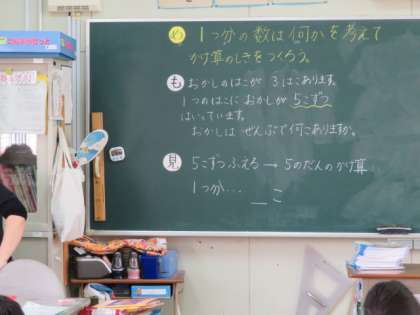 め 1つ分の数は何かを考えて
かけ算のしきをつくろう。
も おかしのはこが 3はこあります。
1つのはこに おかしが 5こずつ
はいっています。
おかしは ぜんぶで何こありますか。
見 5こずつふえる → 5のだんのかけ算
1つが… __こ